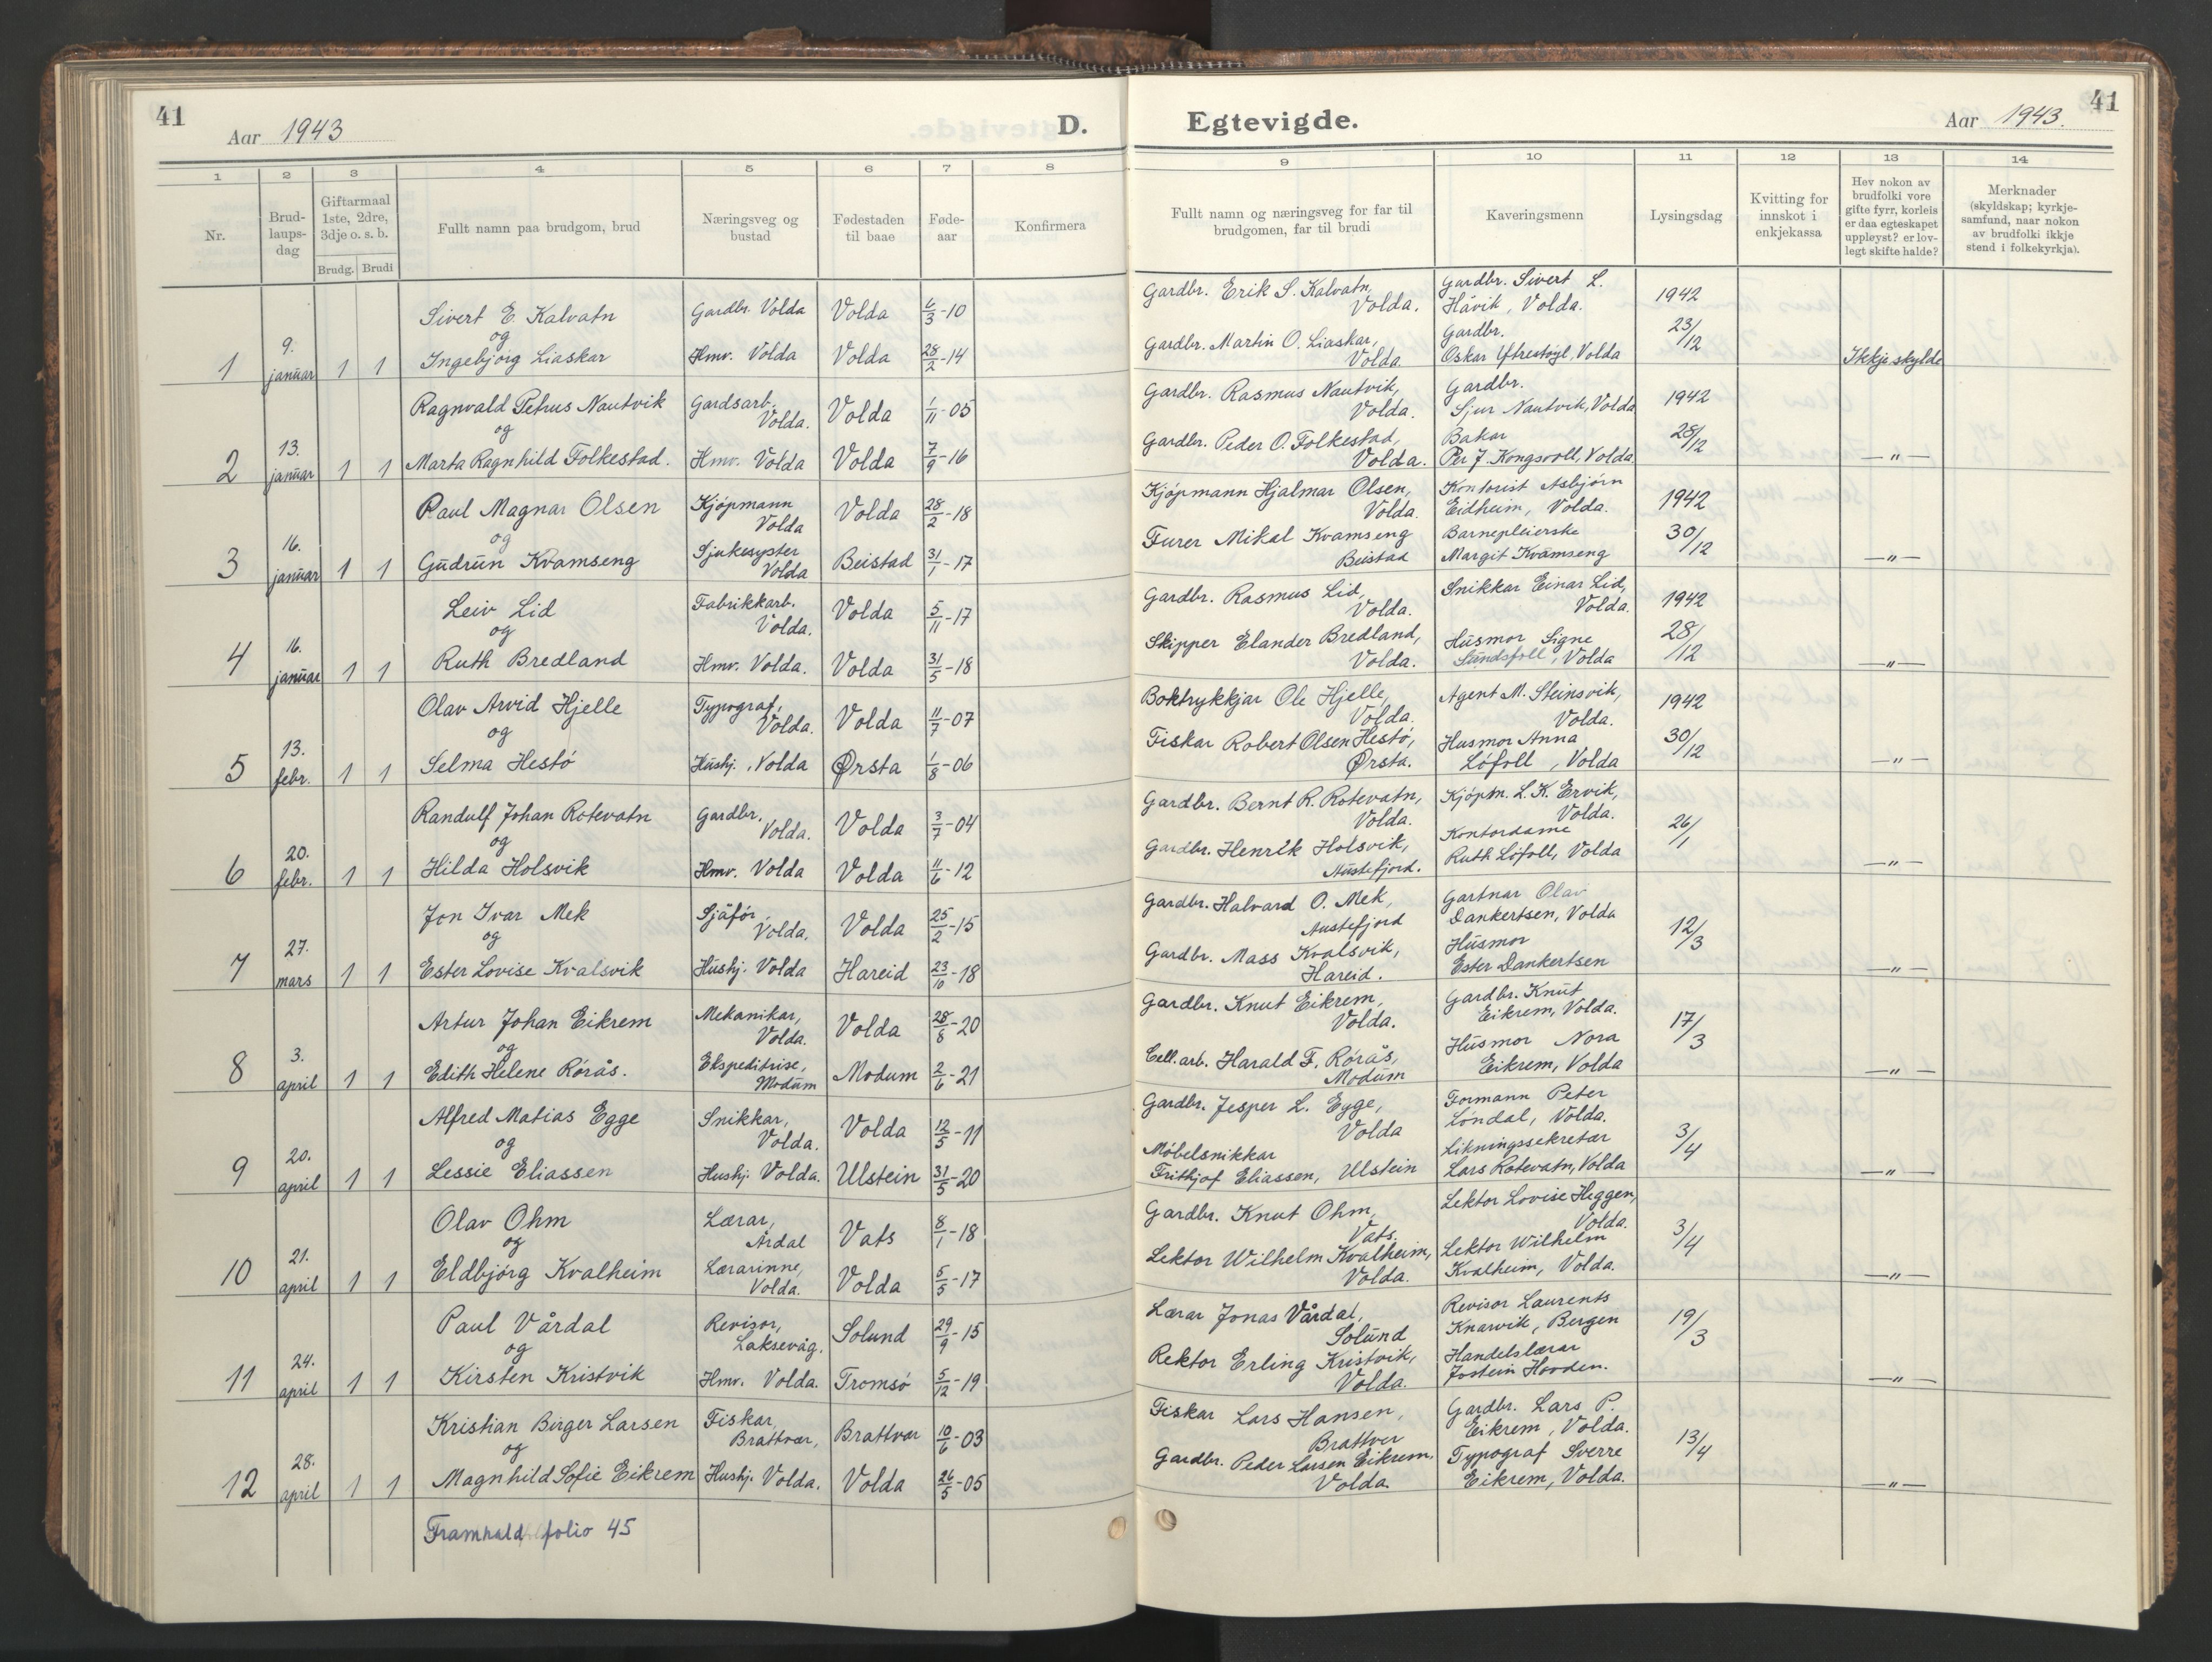 41
Aar 1943
D.
1 2 3 4 5 6 7 8
Nr.
Brud-
laups-
dag
Giftarmaal
1ste, 2dre,
3dje o. s. b.
Brudg. Brudi
Fullt namn paa brudgom, brud
Næringsveg og
bustad
Fødestaden
til baae
Føde-
aar
Konfirmera
Sivert E. Kalvatn Gardbr. Volda Volda 6/3-10
og
1 9. januar 1 1 Ingebjørg Liaskar Hmv. Volda Volda 28/2-14
Ragnvald Petrus Nautvik Gardsarb. Volda. Volda 1/11-05
og
2 13. januar 1 1 Marta Ragnhild Folkestad. Hmv. Volda Volda 7/9-16
Paul Magnar Olsen Kjøpmann Volda Volda 28/2-18
og
3 16. januar 1 1 Gudrun Kvamseng Sjukesyster Volda Beistad 31/1-17
Leiv Lid Fabrikkarb. Volda. Volda 5/11-17
og
4 16. januar 1 1 Ruth Bredland Hmv. Volda. Volda 31/5-18
Olav Arvid Hjelle Typograf, Volda. Volda 11/7-07
og
5 13. febr. 1 1 Selma Hestø Hushj., Volda Ørsta 1/8-06
Randulf Johan Rotevatn Gardbr. Volda. Volda 3/7-04
og
6 20. febr. 1 1 Hilda Holsvik Hmv. Volda Volda 11/6-12
Jon Ivar Mek Sjåfør, Volda. Volda 25/2-15
og
7 27. mars 1 1 Ester Lovise Kvalsvik Hushj. Volda Hareid 23/10-18
Artur Johan Eikrem Mekanikar, Volda. Volda 28/8-20
og
8 3. april 1 1 Edith Helene Rørås. Ekspeditrise, Modum Modum 2/6-21
Alfred Matias Egge Snikkar, Volda. Volda 12/5-11
og
9 20. april 1 1 Lessie Eliassen Hushj. Volda. Ulstein 31/5-20
Olav Ohm Lærar, Årdal Vats 8/1-18
og
10 21. april 1 1 Eldbjørg Kvalheim Lærarinne, Volda. Volda 5/5-17
Paul Vårdal Revisor, Laksevåg. Solund 29/9-15
og
11 24. april 1 1 Kirsten Kristvik Hmv. Volda. Tromsø 5/12-19
Kristian Birger Larsen Fiskar, Brattvær, Brattvær 10/6-03
og
12 28. april 1 1 Magnhild Sofie Eikrem Hushj. Volda. Volda 26/5-05
Framhald folio 45
Egtevigde.
Aar 1943.
41
9 10 11 12 13 14
Fullt namn og næringsveg for far til
brudgomen, far til brudi
Kaveringsmenn
Lysingsdag
Kvitting for
innskot i
enkjekassa
Hev nokon av
brudfolki vore
gifte fyrr, korleis
er daa egteskapet
uppløyst? er lov-
legt skifte halde?
Merknader
(skyldskap; kyrkje-
samfund, naar nokon
av brudfolki ikkje
stend i folkekyrkja).
Gardbr. Erik S. Kalvatn, Gardbr. Sivert L.
Volda. Håvik, Volda. 1942
Gardbr. Martin O. Liaskar, Gardbr. 23/12
Volda. Oskar Ytrestøyl, Volda Ikkje skylde
Gardbr. Rasmus Nautvik, Gardbr.
Volda. Sjur Nautvik, Volda 1942
Gardbr. Peder O. Folkestad, Bakar 28/12
Volda. Per J. Kongsvoll, Volda. —„—
Kjøpmann Hjalmar Olsen, Kontorist Asbjørn
Volda. Eidheim, Volda. 1942
Furer Mikal Kvamseng Barnepleierske 30/12
Beistad Margit Kvamseng —„—
Gardbr. Rasmus Lid, Snikkar Einar Lid,
Volda. Volda. 1942
Skipper Elander Bredland, Husmor Signe 28/12
Volda. Sundsfoll, Volda —„—
Boktrykkjar Ole Hjelle, Agent M. Steinsvik, 1942
Volda. Volda.
Fiskar Robert Olsen Hestø, Husmor Anna 30/12
Ørsta. Løfoll, Volda —„—
Gardbr. Bernt R. Rotevatn, Kjøpm. L. K. Ervik,
Volda. Volda.
Gardbr. Henrik Holsvik, Kontordame 26/1
Austefjord. Ruth Løfoll, Volda —„—
Gardbr. Halvard O. Mek, Gartnar Olav
Austefjord Dankertsen, Volda
Gardbr. Mass Kvalsvik, Husmor 12/3
Hareid. Ester Dankertsen —„—
Gardbr. Knut Eikrem, Gardbr. Knut
Volda. Eikrem, Volda.
Cell.arb. Harald F. Rørås, Husmor Nora 17/3
Modum Eikrem, Volda —„—
Gardbr. Jesper L. Egge, Formann Peter
Volda Løndal, Volda.
Møbelsnikkar Likningssekretær 3/4
Frithjof Eliassen, Ulstein Lars Rotevatn, Volda —„—
Gardbr. Knut Ohm, Lektor Lovise Heggen,
Vats. Volda.
Lektor Wilhelm Kvalheim, Lektor Wilhelm 3/4
Volda. Kvalheim, Volda. —„—
Lærar Jonas Vårdal, Revisor Laurents
Solund Knarvik, Bergen 19/3
Rektor Erling Kristvik, Handelslærar
Volda. Jostein Hovden. —„—
Fiskar Lars Hansen, Gardbr. Lars P.
Brattver Eikrem, Volda.
Gardbr. Peder Larsen Eikrem, Typograf Sverre 13/4
Volda. Eikrem, Volda. —„—